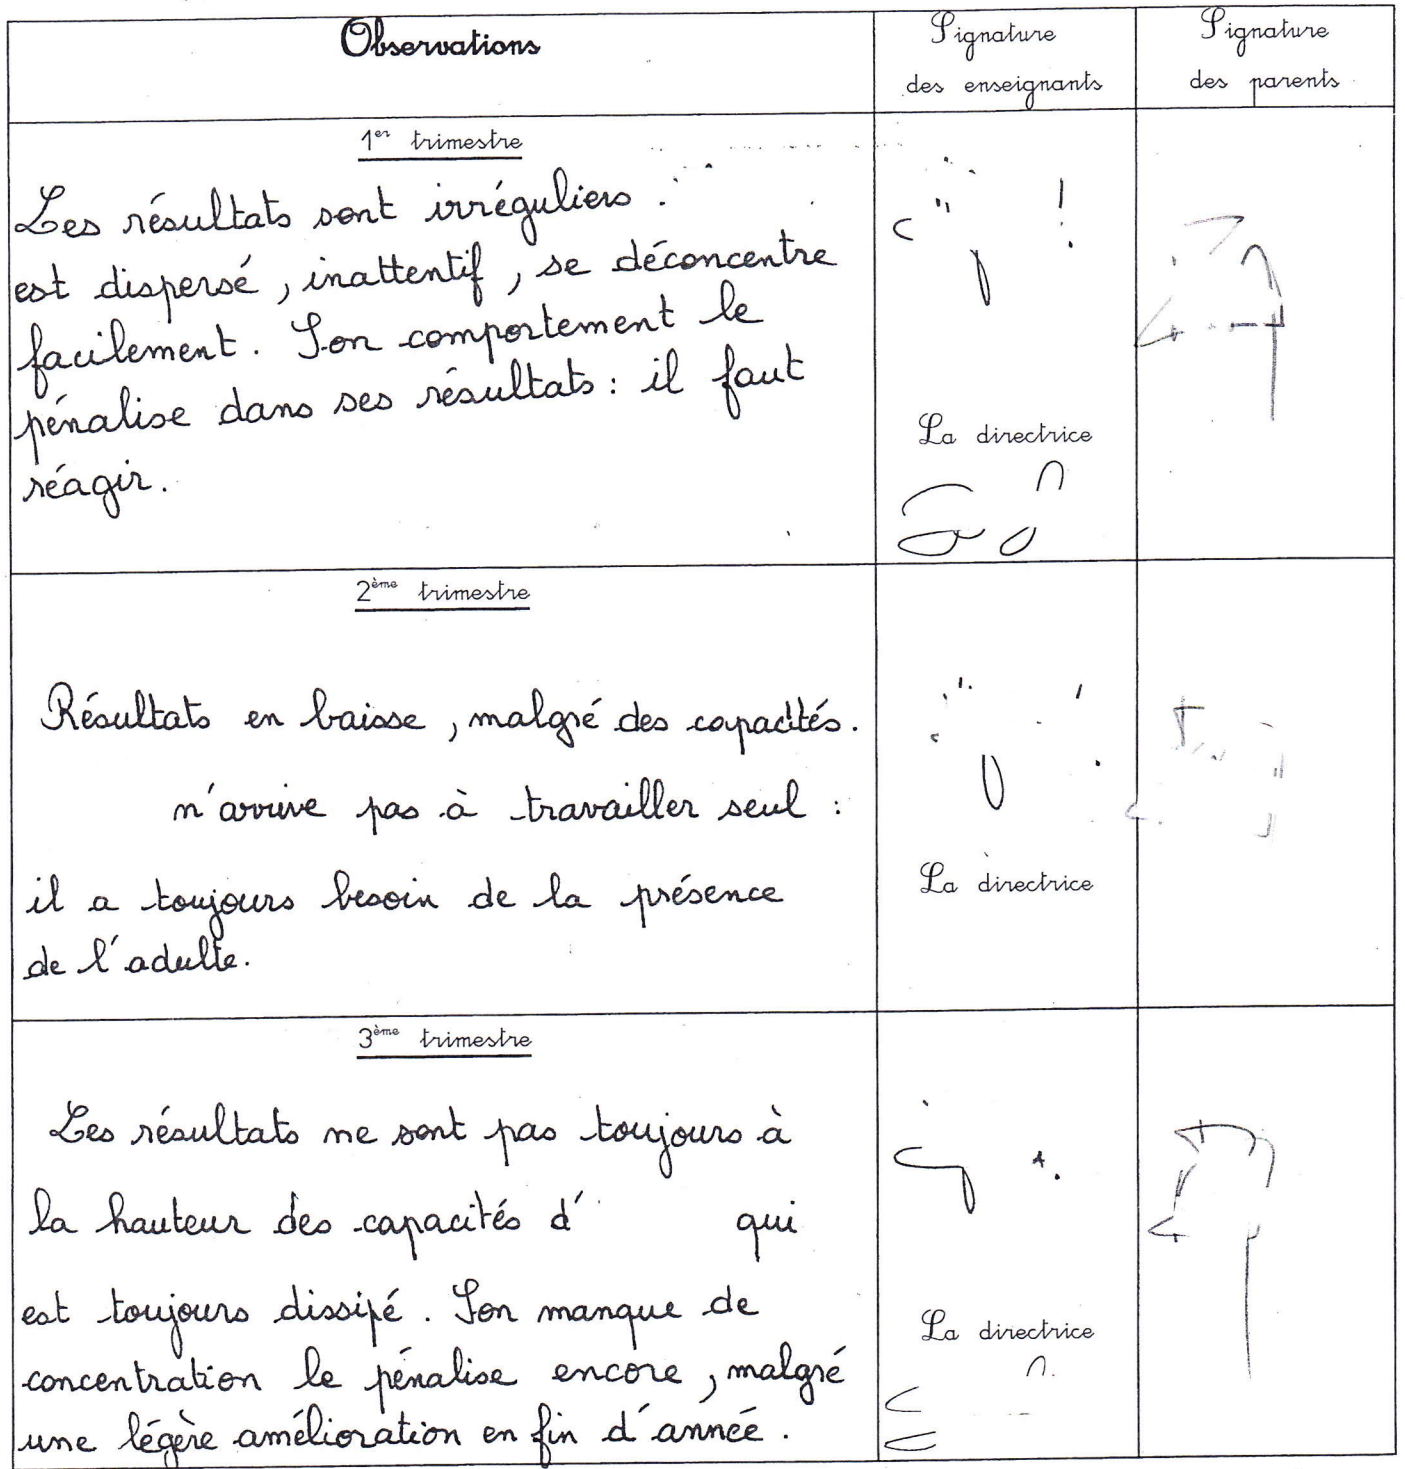 Observations
Signature
des enseignants
Signature
des parents
1er trimestre
Les résultats sont irréguliers.
est dispersé, inattentif, se déconcentre
facilement. Son comportement le
pénalise dans ses résultats : il faut
réagir.
La directrice
2ème trimestre
Résultats en baisse, malgré des capacités.
n'arrive pas à travailler seul :
il a toujours besoin de la présence
de l'adulte.
La directrice
3ème trimestre
Les résultats ne sont pas toujours à
la hauteur des capacités d' qui
est toujours dissipé. Son manque de
concentration le pénalise encore, malgré
une légère amélioration en fin d'année.
La directrice